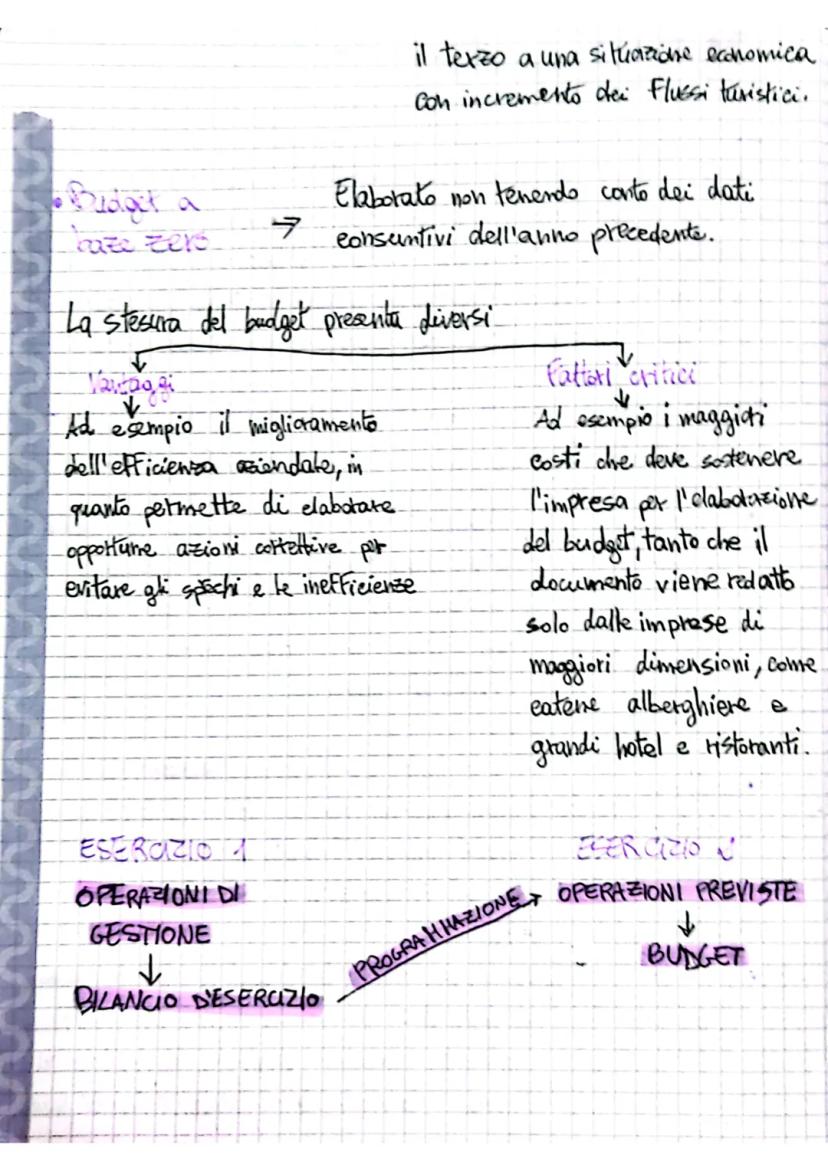 il terzo a una situazione economica
con incremento dei flussi turistici.
• Budget a
baze zero
→ Elaborato non tenendo conto dei dati
consuntivi dell'anno precedente.
La stesura del budget presenta diversi
Vantaggi
Ad esempio il miglioramento
dell'efficienza aziendale, in
quanto permette di elaborare
opportune azioni correttive per
evitare gli sprechi e le inefficienze
Fattori critici
Ad esempio i maggiori
costi che deve sostenere
l'impresa per l'elaborazione
del budget, tanto che il
documento viene redatto
solo dalle imprese di
maggiori dimensioni, come
catene alberghiere e
grandi hotel e ristoranti.
ESERCIZIO 1
OPERAZIONI DI
GESTIONE
↓
BILANCIO D'ESERCIZIO
PROGRAMMAZIONE
ESERCIZIO 2
OPERAZIONI PREVISTE
↓
BUDGET